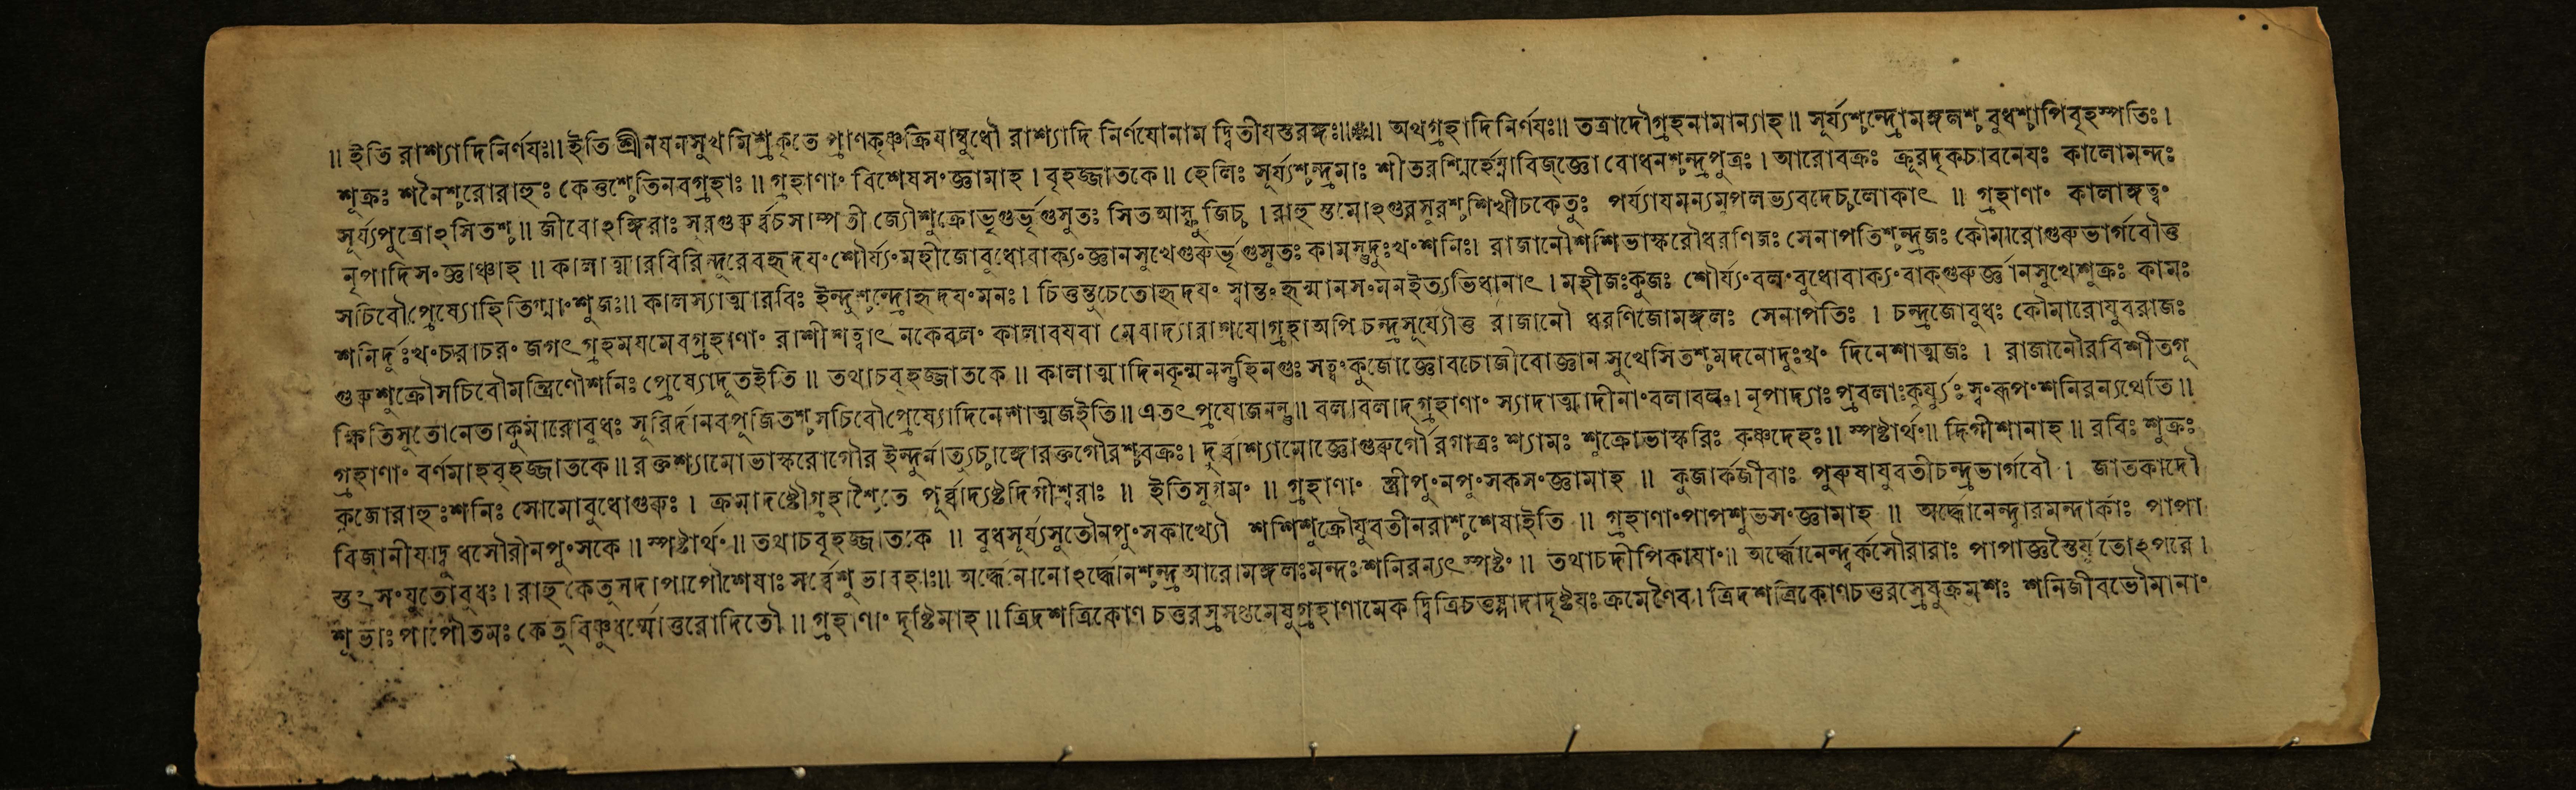 ॥ ইতি রাশ্যাদিনির্ণযঃ॥ ইতি শ্রীনযনসুখমিশ্রকৃতে প্রাণকৃষ্ণক্রিযাম্বুধৌ রাশ্যাদি নির্ণযোনাম দ্বিতীযস্তরঙ্গঃ॥❀॥ অথগ্রহাদিনির্ণযঃ॥ তত্রাদৌগ্রহনামান্যাহ॥ সূর্য্যশ্চন্দ্রোমঙ্গলশ্চ বুধশ্চাপিবৃহস্পতিঃ।
শুক্রঃ শনৈশ্চরোরাহুঃ কেতুশ্চেতিনবগ্রহাঃ॥ গ্রহাণাং বিশেষসংজ্ঞামাহ। বৃহজ্জাতকে॥ হেলিঃ সূর্য্যশ্চন্দ্রমাঃ শীতরশ্মির্হেম্নাবিজ্জ্ঞো বোধনশ্চন্দ্রপুত্রঃ। আরোবক্রঃ ক্রূরদৃকচাবনেযঃ কালোমন্দঃ
সূর্য্যপুত্রোঽসিতশ্চ॥ জীবোঽঙ্গিরাঃ সরগুরুর্ব্বচসাম্পতী জ্যৌশুক্রোভৃগুর্ভৃগুসুতঃ সিতআস্ফুজিচ্চ। রাহুস্তমোঽগুরসুরশ্চশিখীচকেতুঃ পর্য্যাযমন্যমুপলভ্যবদেচ্চলোকাৎ॥ গ্রহাণাং কালাঙ্গত্বং
নৃপাদিসংজ্ঞাঞ্চাহ॥ কালাত্মারবিরিন্দুরেবহৃদযংশৌর্য্যংমহীজোবুধোবাক্যংজ্ঞানসুখেগুরুর্ভৃগুসুতঃ কামস্তুদুঃখংশনিঃ। রাজানৌশশিভাস্করৌধরণিজঃ সেনাপতিশ্চন্দ্রজঃ কৌমারোগুরুভার্গবৌতু
সচিবৌপ্রেষ্যোহিতিগ্মাংশুজঃ॥ কালস্যাত্মারবিঃ ইন্দুশ্চন্দ্রোহৃদযংমনঃ। চিত্তন্তুচেতোহৃদযং স্বান্তংহৃন্মানসংমনইত্যভিধানাৎ। মহীজঃকুজঃ শৌর্য্যংবলংবুধোবাক্যংবাক্গুরুর্জ্ঞানসুখেশুক্রঃ কামঃ
শনির্দুঃখংচরাচরং জগৎ গ্রহমযমেবগ্রহাণাং রাশীশত্বাৎ নকেবলং কালাবযবা মেষাদ্যারাশযোগ্রহাঅপি চন্দ্রসূর্য্যৌতু রাজানৌ ধরণিজোমঙ্গলঃ সেনাপতিঃ। চন্দ্রজোবুধঃ কৌমারোযুবরাজঃ
গুরুশুক্রৌসচিবৌমন্ত্রিণৌশনিঃ প্রেষ্যোদূতইতি॥ তথাচবৃহজ্জাতকে॥ কালাত্মাদিনকৃন্মনস্তুহিনগুঃ সত্ত্বংকুজোজ্ঞোবচোজীবোজ্ঞান সুখেসিতশ্চমদনোদুঃখং দিনেশাত্মজঃ। রাজানৌরবিশীতগূ
ক্ষিতিসুতোনেতাকুমারোবুধঃ সূরির্দানবপূজিতশ্চসচিবৌপ্রেষ্যোদিনেশাত্মজইতি॥ এতৎ প্রযোজনন্তু॥ বলাবলাদ্গ্রহাণাং স্যাদাত্মাদীনাংবলাবলং। নৃপাদ্যাঃ প্রবলাঃকুর্য্যুঃ স্বংরূপংশনিরন্যথেতি॥
গ্রহাণাং বর্ণমাহবৃহজ্জাতকে॥ রক্তশ্যামোভাস্করোগৌর ইন্দুর্নাত্যুচ্চাঙ্গোরক্তগৌরশ্চবক্রঃ। দূর্ব্বাশ্যামোজ্ঞোগুরুর্গৌরগাত্রঃ শ্যামঃ শুক্রোভাস্করিঃ কৃষ্ণদেহঃ॥ স্পষ্টার্থং॥ দিগীশানাহ॥ রবিঃ শুক্রঃ
কুজোরাহুঃশনিঃ সোমোবুধোগুরুঃ। ক্রমাদষ্টৌগ্রহাশ্চৈতে পূর্ব্বাদ্যষ্টদিগীশ্বরাঃ॥ ইতিসুগমং॥ গ্রহাণাং স্ত্রীপুংনপুংসকসংজ্ঞামাহ॥ কুজার্কজীবাঃ পুরুষাযুবতীচন্দ্রভার্গবৌ। জাতকাদৌ
বিজানীযাদ্বুধসৌরীনপুংসকে॥ স্পষ্টার্থং॥ তথাচবৃহজ্জাতকে॥ বুধসূর্য্যসুতৌনপুংসকাখ্যৌ শশিশুক্রৌযুবতীনরাশ্চশেষাইতি॥ গ্রহাণাংপাপশুভসংজ্ঞামাহ॥ অর্দ্ধোনেন্দ্বারমন্দার্কাঃ পাপা
স্তৎসংযুতোবুধঃ। রাহুকেতুসদাপাপৌশেষাঃ সর্ব্বেশুভাবহাঃ॥ অর্দ্ধেনোনোঽর্দ্ধোনশ্চন্দ্রআরোমঙ্গলঃমন্দঃশনিরন্যৎস্পষ্টং॥ তথাচদীপিকাযাং॥ অর্দ্ধোনেন্দ্বর্কসৌরারাঃ পাপাজ্ঞস্তৈর্যুতোঽপরে।
শুভাঃপাপৌতমঃ কেতুবিষ্ণুধর্ম্মোত্তরোদিতৌ॥ গ্রহাণাং দৃষ্টিমাহ॥ ত্রিদশত্রিকোণ চতুরস্রসপ্তমেষুগ্রহাণামেক দ্বিত্রিচতুষ্পাদাদৃষ্টযঃ ক্রমেণৈব। ত্রিদশত্রিকোণচতুরস্রেষুক্রমশঃ শনিজীবভৌমানাং